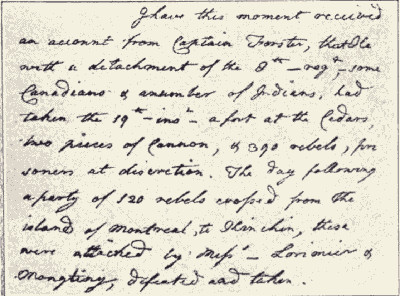 I have this moment received
an account from Captain Forster, that He
with a detachment of the 8th - regt - some
Canadians & a number of Indians, had
taken the 19th - inst - a fort at the Cedars,
two pieces of Cannon, & 390 rebels, pri
soners at discretion. The day following
a party of 120 rebels crossed from the
island of Montreal, to Kinchin, these
were attacked by Messrs - Lorimier &
Mongtiny, defeated and taken.